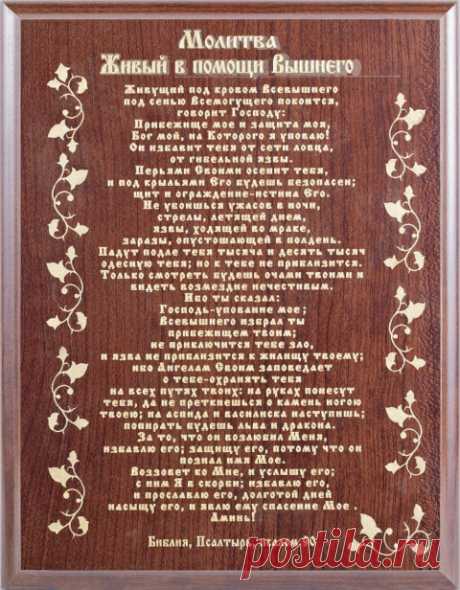 Молитва
Живый в помощи Вышнего
Живущий под кровом Всевышнего
под сенью Всемогущего покоится,
говорит Господу:
Прибежище мое и защита моя,
Бог мой, на Которого я уповаю!
Он избавит тебя от сети ловца,
от гибельной язвы.
Перьями Своими осенит тебя,
и под крыльями Его будешь безопасен;
щит и ограждение-истина Его.
Не убоишься ужасов в ночи,
стрелы, летящей днем,
язвы, ходящей во мраке,
заразы, опустошающей в полдень.
Падут подле тебя тысяча и десять тысяч
одесную тебя; но к тебе не приблизится.
Только смотреть будешь очами твоими и
видеть возмездие нечестивым.
Ибо ты сказал:
Господь-упование мое;
Всевышнего избрал ты
прибежищем твоим;
не приключится тебе зло,
и язва не приблизится к жилищу твоему;
ибо Ангелам Своим заповедает
о тебе-охранять тебя
на всех путях твоих: на руках понесут
тебя, да не преткнешься о камень ногою
твоею; на аспида и василиска наступишь;
попирать будешь льва и дракона.
За то, что он возлюбил Меня,
избавлю его; защищу его, потому что он
познал имя Мое.
Воззовет ко Мне, и услышу его;
с ним Я в скорби; избавлю его,
и прославлю его, долготой дней
насыщу его, и явлю ему спасение Мое .
Аминь!
Библия, Псалтырь, псалом 90
postila.ru